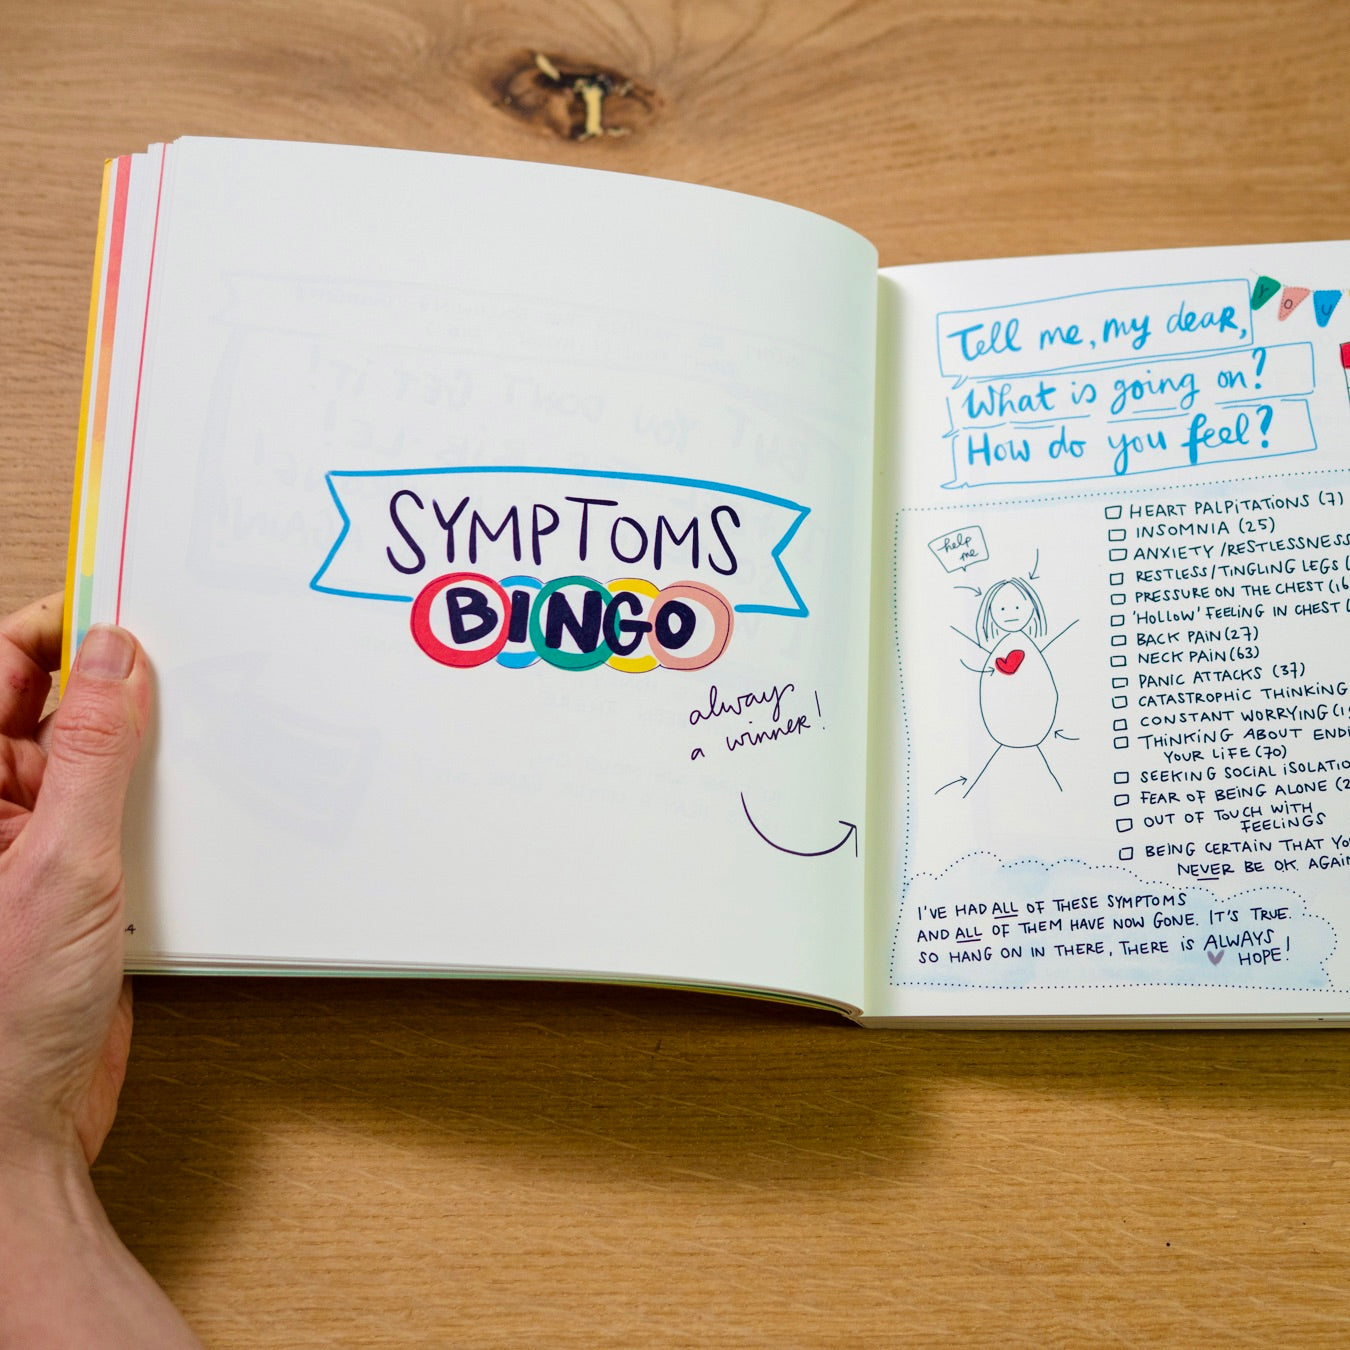 SYMPTOMS
BINGO
always
a winner!
Tell me, my dear,
What is going on?
How do you feel?
YOU
help
me
HEART PALPITATIONS (7)
INSOMNIA (25)
ANXIETY/RESTLESSNESS
RESTLESS/TINGLING LEGS
PRESSURE ON THE CHEST (16
'HOLLOW' FEELING IN CHEST
BACK PAIN (27)
NECK PAIN (63)
PANIC ATTACKS (37)
CATASTROPHIC THINKING
CONSTANT WORRYING
THINKING ABOUT
YOUR LIFE (70)
SEEKING SOCIAL
FEAR OF BEING ALONE
OUT OF TOUCH WITH
FEELINGS
BEING CERTAIN THAT
NEVER BE OK AGAIN
I'VE HAD ALL OF THESE SYMPTOMS
AND ALL OF THEM HAVE NOW GONE. IT'S TRUE.
SO HANG ON IN THERE, THERE IS ALWAYS
HOPE!